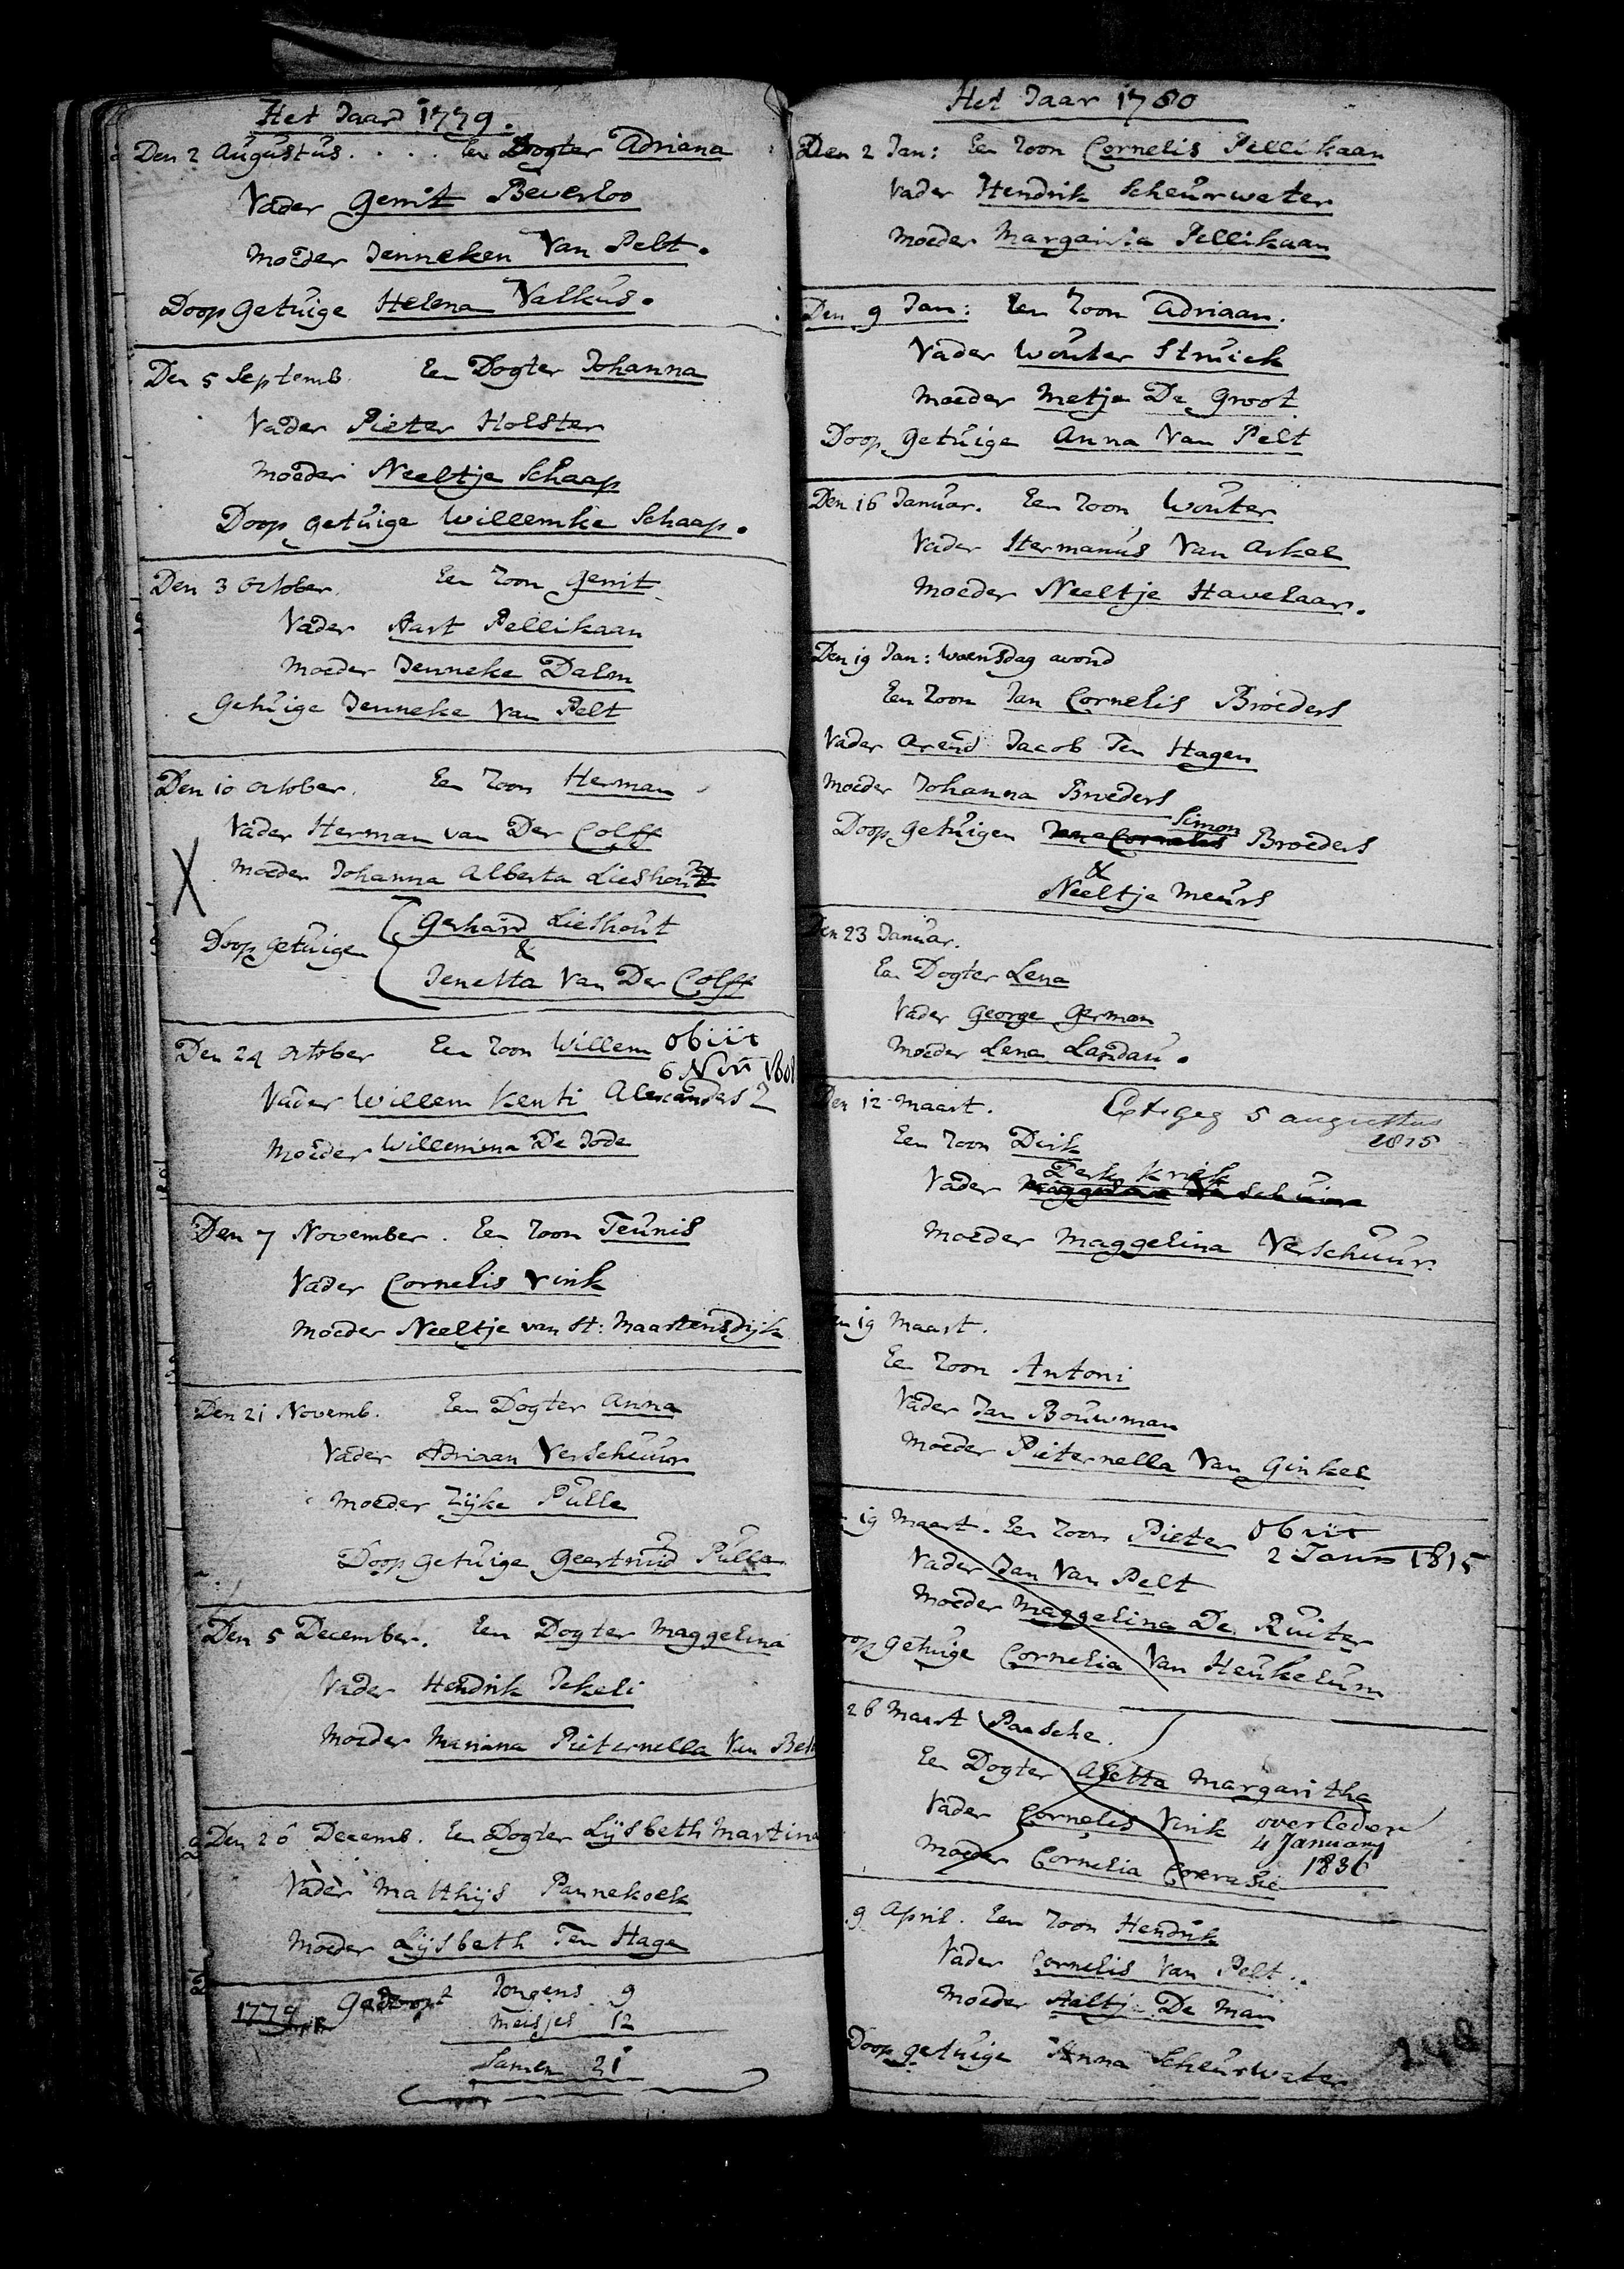 Het Jaar 1779.
Den 2 Augustus. . . . Een Dogter Adriana
Vader Gerrit Beverloo
Moeder Jenneken Van Pelt.
Doop getuige Helena Valkus.
Den 5 Septemb. Een Dogter Johanna
Vader Pieter Holster
Moeder Neeltje Schaap
Doop getuige Willemke Schaap.
Den 3 October. Een Zoon Gerrit
Vader Aart Pellikaan
Moeder Jenneke Dalm
Getuige Jenneke Van Pelt
Den 10 October. Een Zoon Herman
Vader Herman van Der Colff
X Moeder Johanna Alberta Lieshout
Doop getuige Gerhard Lieshout
&
Jenetta Van Der Colff
Den 24 October Een Zoon Willem obiit
6 Nov 1801
Vader Willem Kenti Alexanders Z
Moeder Willemina De Jode
Den 7 November. Een Zoon Teunis
Vader Cornelis Vink
Moeder Neeltje van St: Maartensdijk
Den 21 Novemb. Een Dogter Anna
Vader Adriaan Verschuur
Moeder Zijke Pulle
Doop getuige Geertruid Pulle
Den 5 December. Een Dogter Maggelina
Vader Hendrik Jekeli
Moeder Mariana Pieternella Van
Den 26 Decemb. Een Dogter Lijsbeth Martina
Vader Matthijs Pannekoek
Moeder Lijsbeth Ten Hage
1779 Gedoopt Jongens 9
Meisjes 12
Samen 21
Het Jaar 1780
Den 2 Jan: Een Zoon Cornelis Pellikaan
Vader Hendrik Scheurweter
Moeder Margarita Pellikaan
Den 9 Jan: Een Zoon Adriaan.
Vader Wouter Struick
Moeder Metje De Groot
Doop getuige Anna Van Pelt
Den 16 Januar. Een Zoon Wouter
Vader Hermanus Van Arkel
Moeder Neeltje Havelaar.
Den 19 Jan: Woensdag avond
Een Zoon Jan Cornelis Broeders
Vader Arend Jacob Ten Hagen
Moeder Johanna Broeders
Simon
Doop getuigen Jan Cornelis Broeders
&
Neeltje Meurs
Den 23 Januar.
Een Dogter Lena
Vader George German
Moeder Lena Landau.
Den 12 Maart. Extr geg 5 augustus
1815
Een Zoon Dirk
Derk Kriek
Vader
Moeder Maggelina Verschuur.
19 Maart.
Een Zoon Antoni
Vader Jan Bouwman
Moeder Pieternella Van Ginkel
19 Maart. Een Zoon Pieter obiit
2 Janu 1815
Vader Jan Van Pelt
Moeder Maggelina De Ruiter
getuige Cornelia Van Heukelum
26 Maart Paasche.
Een Dogter Aletta Margaritha
Vader Cornelis Vink overleden
4 January
Moeder Cornelia 1836
9 April. Een Zoon Hendrik
Vader Cornelis Van Pelt.
Moeder Aaltje De Man
Doop getuige Anna Scheurwater
248